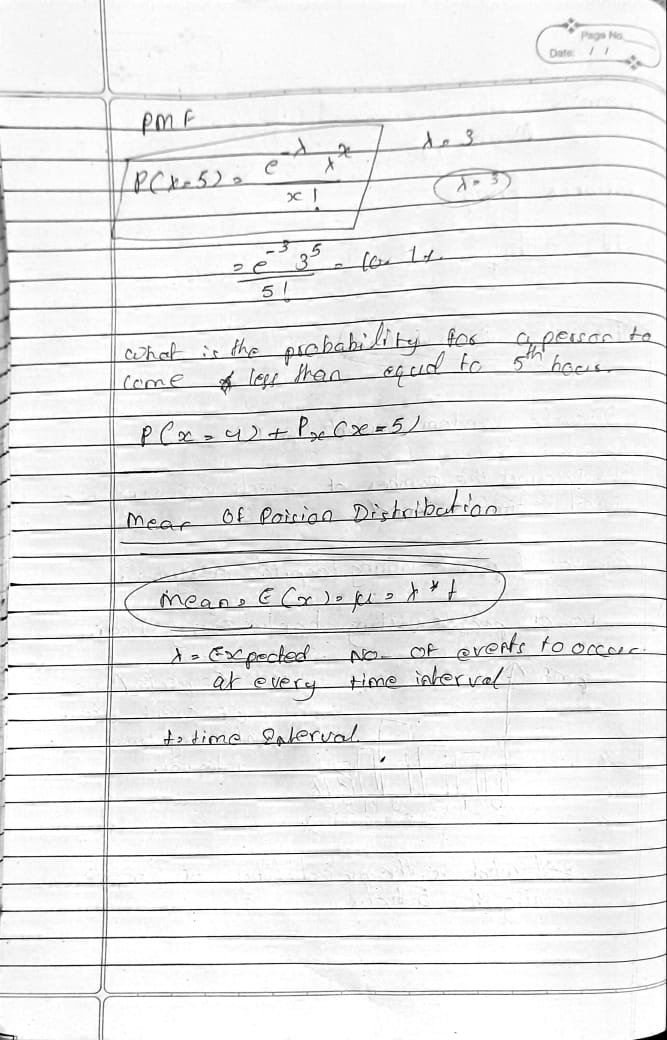 Page No.
Date: / /
PMF
P(x=5) = e^-λ λ^x / x!
λ = 3
λ = 3
= e^-3 3^5 / 5! =
what is the probability for a person to
come less than equal to 5th
P(x = 4) + Px(x = 5)
Mean Of Poision Distribution
Mean = E(x) = μ = λ * t
λ = Expected No. OF events to occur
at every time interval
t = time Interval